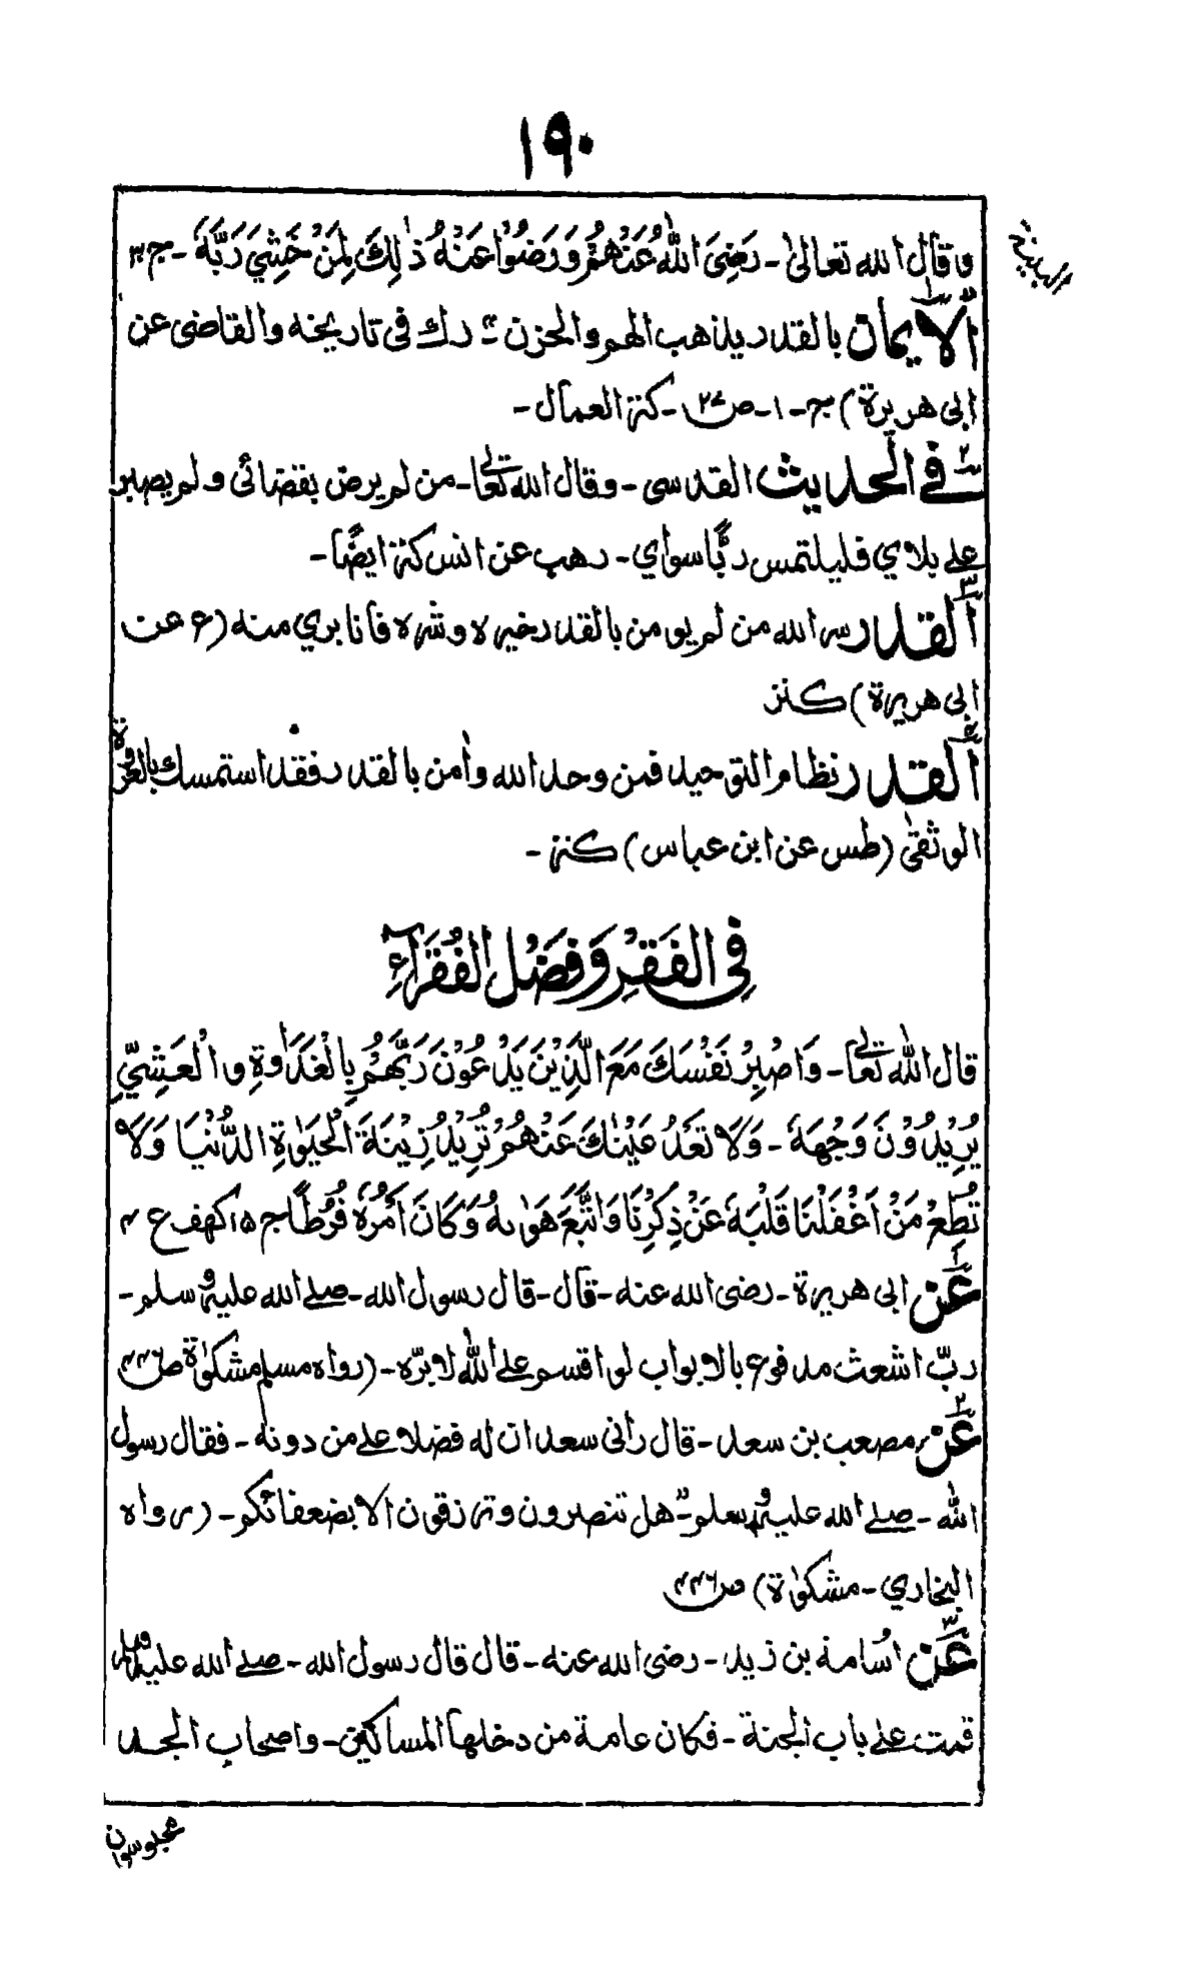 ۱۹۰
وقال الله تعالىٰ۔ رَضِىَ اللّٰهُ عَنْهُمْ وَرَضُوْا عَنْهُ ذٰلِكَ لِمَنْ خَشِيَ رَبَّهٗ۔ ج۳۰
البينة
اَلْاِيمان بالقدر يذهب الهم والحزن (ك فى تاريخه والقاضى عن
ابى هريرة) ج۔۱۔ص۲۷۔كنز العمال۔
فے الحديث القدسى۔ وقال الله تعالىٰ۔ من لم يرض بقضائى ولم يصبر
علے بلاي فليلتمس ربًّا سواي۔ (هب عن انس كنز ايضًا۔
اَلقدر سر الله من لم يومن بالقدر خيره وشره فانا بري منه (ع عن
ابى هريرة) كنز
اَلقدر نظام التوحيد فمن وحد الله واٰمن بالقدر فقد استمسك بالعروة
الوثقىٰ (طس عن ابن عباس) كنز۔
فِى الفَقْرِ وَفَضْلِ الفُقَرَآءِ
قال اللّٰه تعالىٰ۔ وَاصْبِرْ نَفْسَكَ مَعَ الَّذِيْنَ يَدْعُوْنَ رَبَّهُمْ بِالْغَدٰوةِ والْعَشِيِّ
يُرِيْدُوْنَ وَجْهَهٗ۔ وَلَا تَعْدُ عَيْنٰكَ عَنْهُمْ تُرِيْدُ زِيْنَةَ الْحَيٰوةِ الدُّنْيَا وَلَا
تُطِعْ مَنْ اَغْفَلْنَا قَلْبَهٗ عَنْ ذِكْرِنَا وَاتَّبَعَ هَوٰىهُ وَكَانَ اَمْرُهٗ فُرُطًا ج۱۵ كهف ع ۴
عَن ابى هريرة۔ رضى الله عنه۔ قال۔ قال رسول الله۔ صلے الله عليه وسلم۔
ربّ اشعث مدفوع بالابواب لو اقسم علے اللّٰه لابرّه۔ (رواه مسلم مشكوٰة ص۴۴۶
عَن مصعب بن سعد۔ قال راٰى سعد ان له فضلا علے من دونه۔ فقال رسول
الله۔ صلے الله عليه وسلم۔ هل تنصرون وترزقون الا بضعفائكم۔ (رواه
البخاري۔ مشكوٰة) ص۴۴۶
عَن اُسامة بن زيد۔ رضى الله عنه۔ قال قال رسول الله۔ صلے الله عليه وسلم
قمت علے باب الجنة۔ فكان عامة من دخلها المساكين۔ واصحاب الجد
محبوسون